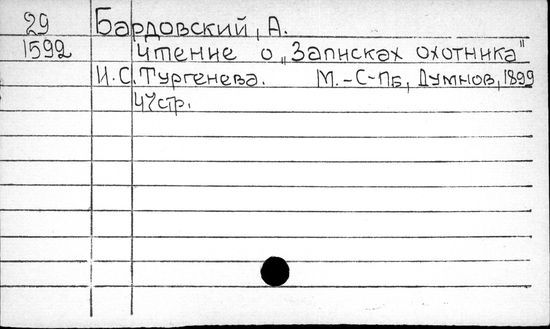 29 Бардовский, А.
1592 Чтение о „Записках охотника"
И.С.Тургенева. М.-С-Пб, Думнов, 1899
47стр.